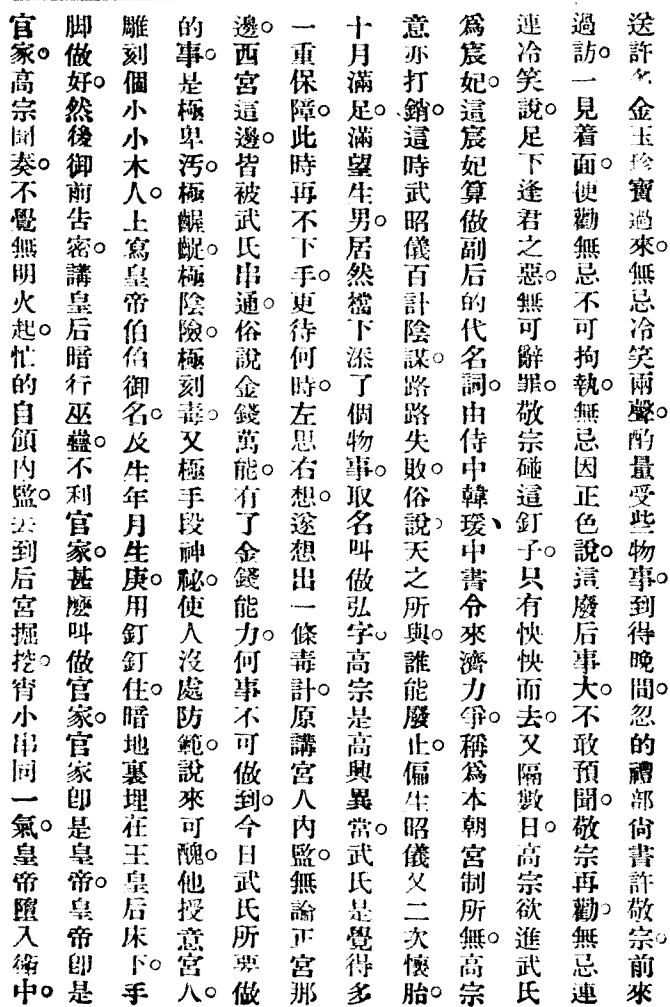 送許多金玉珍寶過來。無忌冷笑兩聲。酌量受些物事。到得晚間。忽的禮部尚書許敬宗前來
過訪。一見着面。便勸無忌不可拘執。無忌因正色說。這廢后事大。不敢預聞。敬宗再勸。無忌連
連冷笑說。足下逢君之惡。無可辭罪。敬宗碰這釘子。只有怏怏而去。又隔數日。高宗欲進武氏
爲宸妃。這宸妃算做副后的代名詞。由侍中韓瑗、中書令來濟力爭。稱爲本朝宮制所無。高宗
意亦打銷。這時武昭儀百計陰謀。路路失敗。俗說天之所興。誰能廢止。偏生昭儀又二次懷胎。
十月滿足。滿望生男。居然襠下添了個物事。取名叫做弘字。高宗是高興異常。武氏是覺得多
一重保障。此時再不下手。更待何時。左思右想。遂想出一條毒計。原講宮人內監。無論正宮那
邊。西宮這邊。皆被武氏串通。俗說金錢萬能。有了金錢能力。何事不可做到。今日武氏所要做
的事。是極卑污。極齷齪。極陰險。極刻毒。又極手段神祕。使人沒處防範。說來可醜。他授意宮人。
雕刻個小小木人。上寫皇帝伯伯御名。及生年月生庚。用釘釘住。暗地裏埋在王皇后床下。手
脚做好。然後御前告密。講皇后暗行巫蠱。不利官家。甚麽叫做官家。官家卽是皇帝。皇帝卽是
官家。高宗聞奏。不覺無明火起。忙的自領內監去到后宮掘挖。宵小串同一氣。皇帝墮入術中。